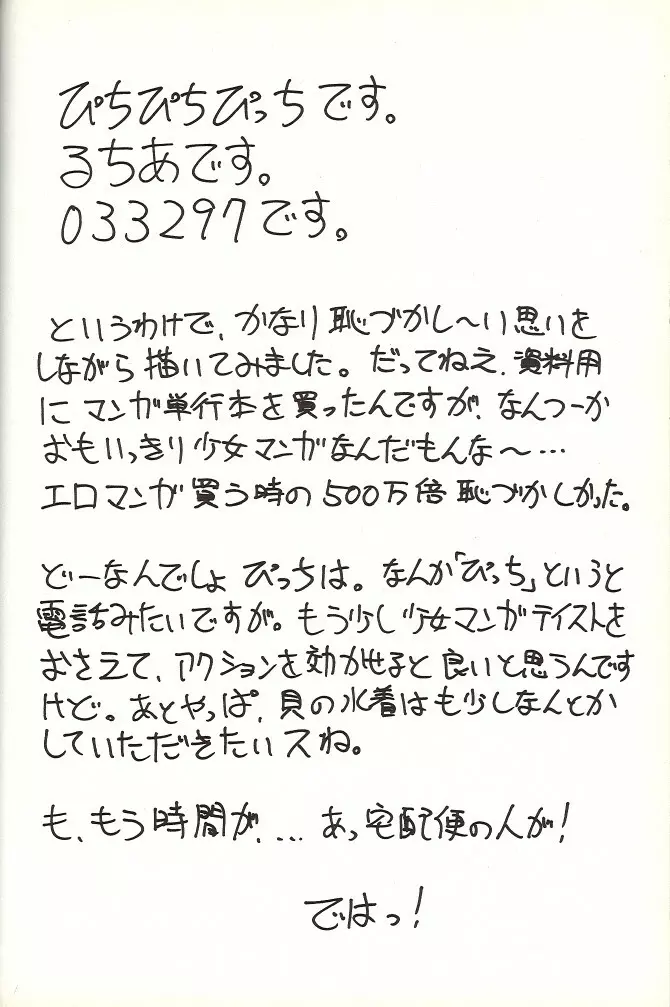 ぴちぴちぴっちです。
るちあです。
033297です。
というわけで、かなり恥づかし〜い思いを
しながら描いてみました。だってねえ、資料用
にマンガ単行本を買ったんですが、なんつーか
おもいっきり少女マンガなんだもんな〜…
エロマンガ買う時の500万倍恥づかしかった。
どーなんでしょ ぴっちは。なんか「ぴっち」というと
電話みたいですが。もう少し少女マンガテイストを
おさえて、アクションを効かせると良いと思うんです
けど。あとやっぱ、貝の水着はも少しなんとか
していただきたいスね。
も、もう時間が、… あっ宅配便の人が！
ではっ！